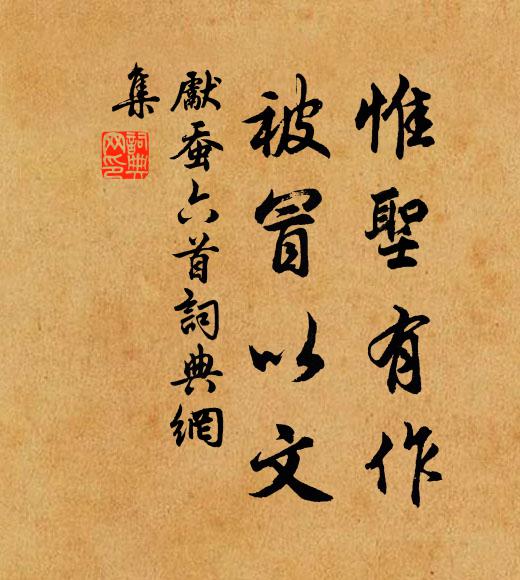 惟聖有作
被冒以文
獻蚕六首詞典網
集
詞典
网印